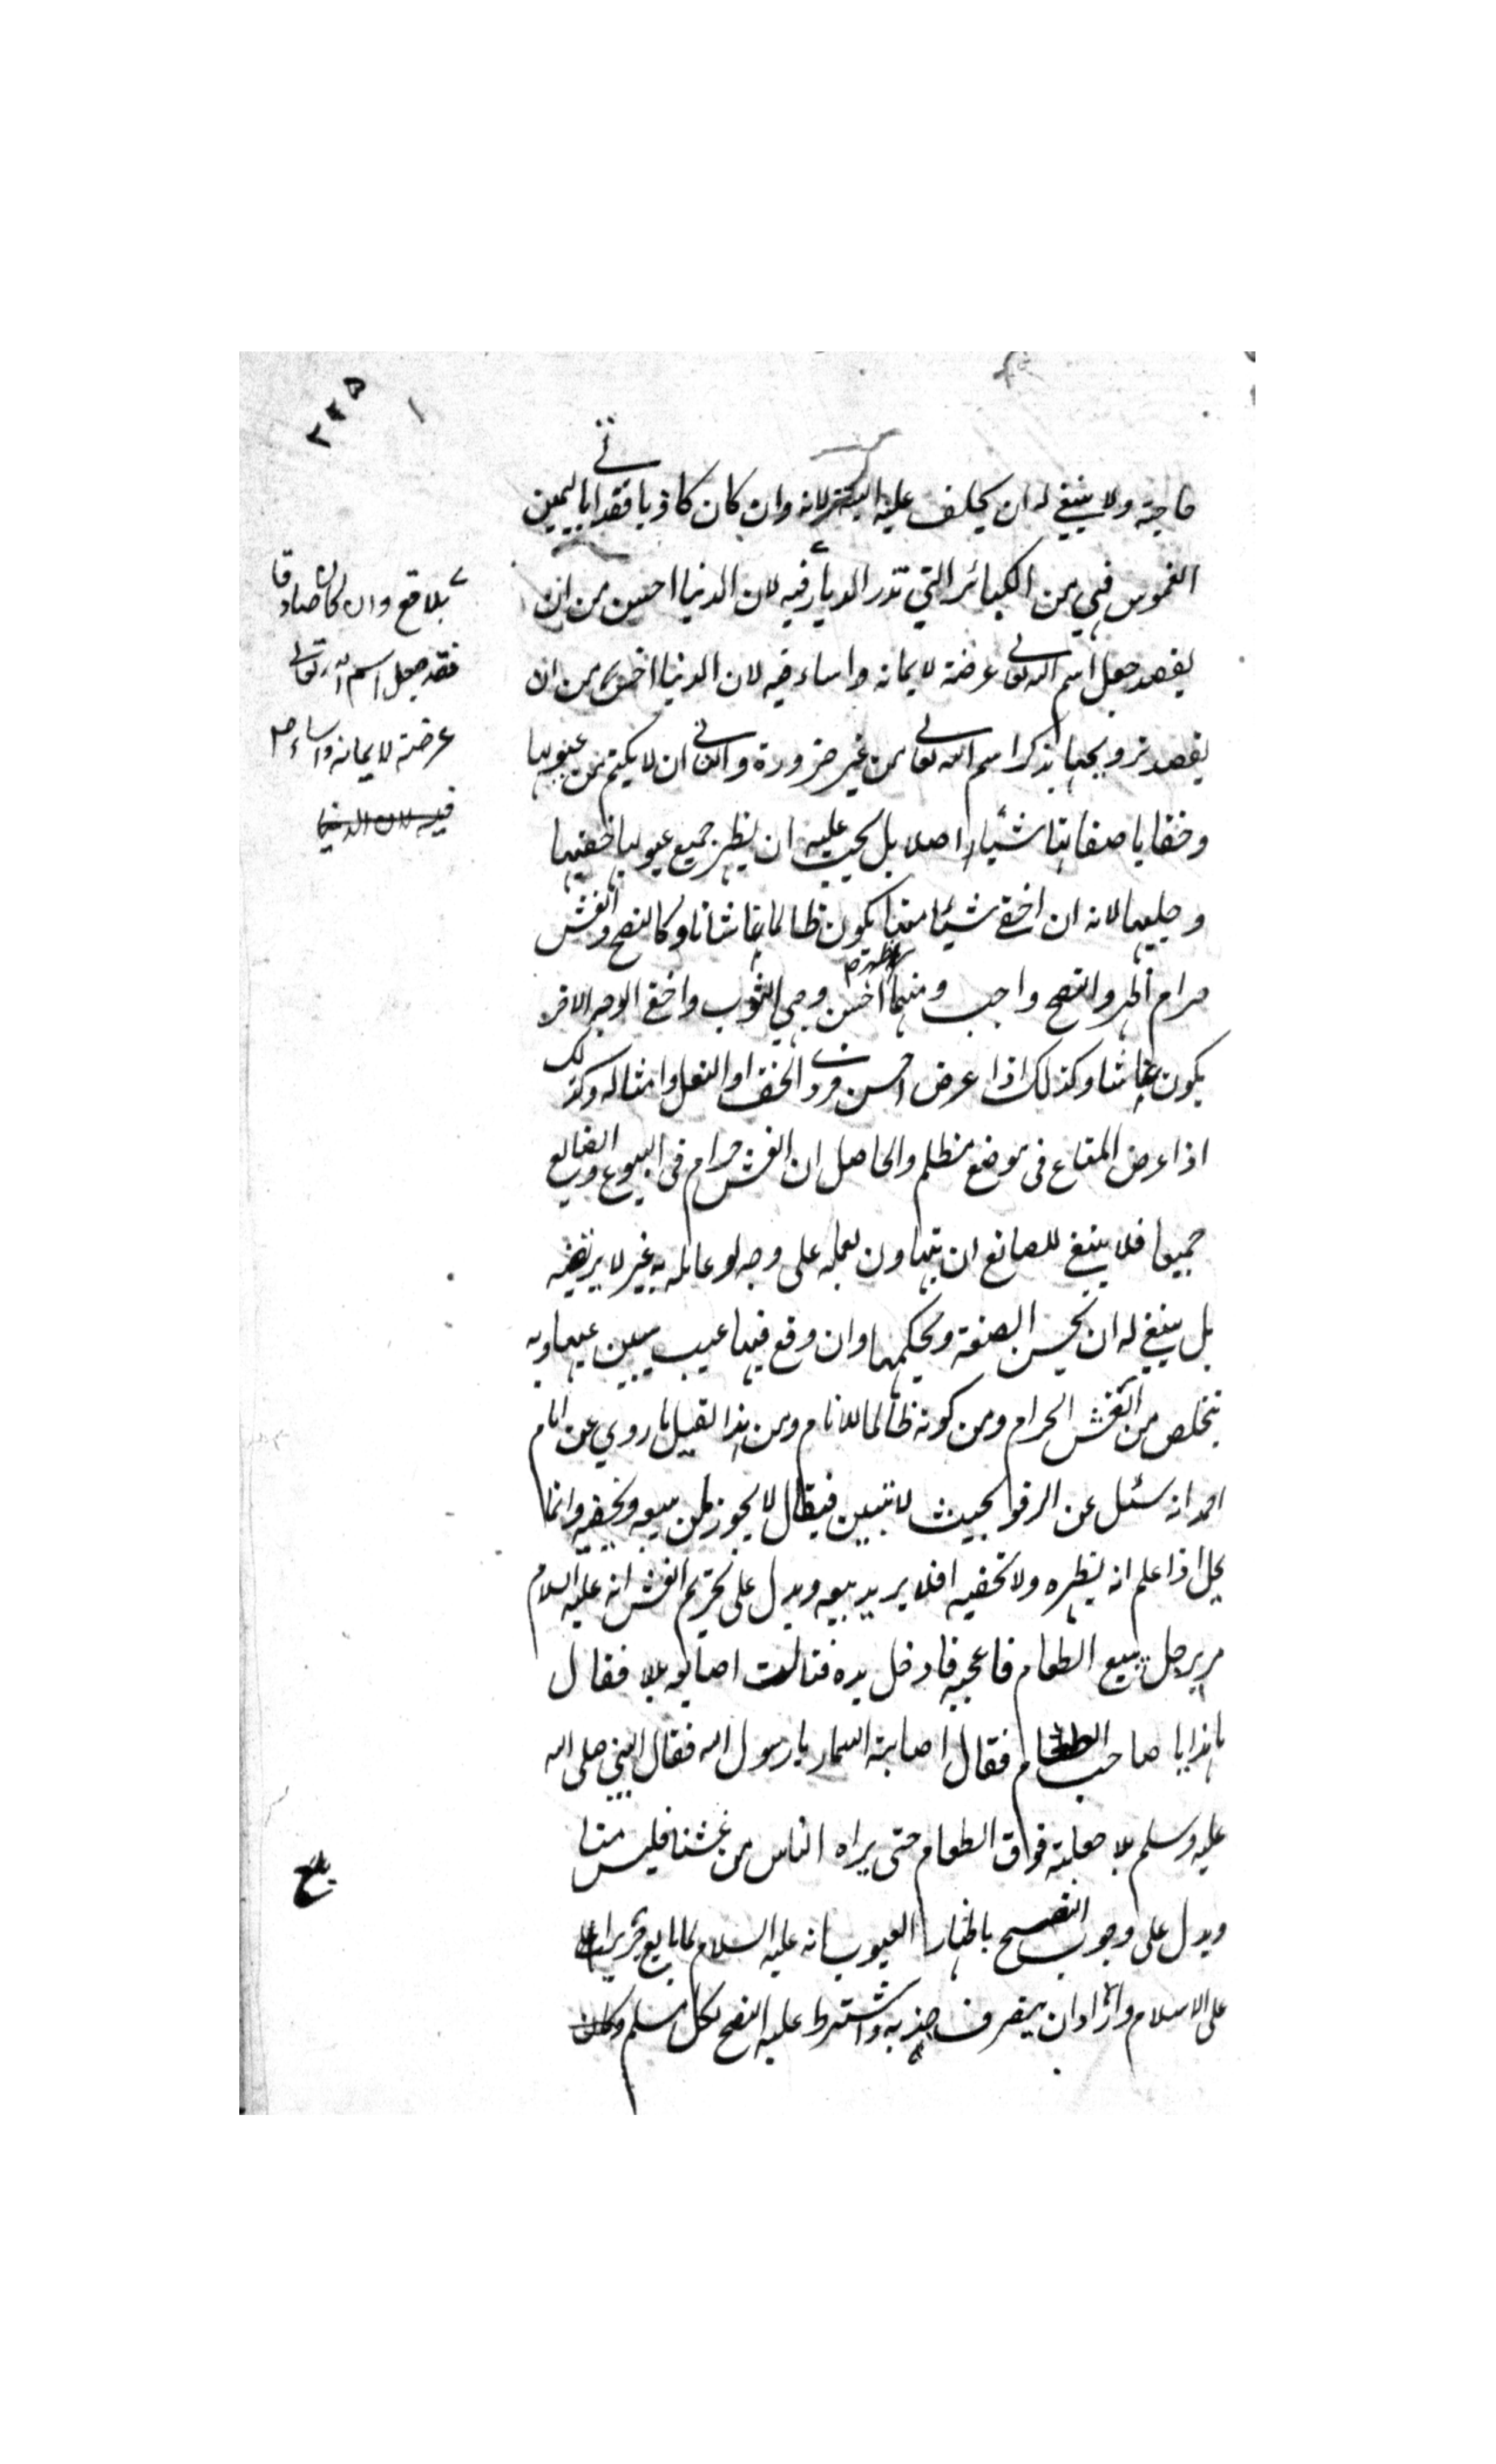 ٢٣٥
حاجته ولا ينبغي له ان يحلف عليه البتة لانه وان كان كاذبا فقد اتى باليمين
الغموس فهي من الكبائر التي تذر الديار فيه لان الدنيا اخس من ان
يقصد جعل اسم الله تعالى عرضة لايمانه واساء فيه لان الدنيا اخس من ان
يقصد ترويجها بذكر اسم الله تعالى من غير ضرورة والثاني ان لا يكتم من عيوبها
وخفايا صفاتها شيئا اصلا بل يجب عليه ان يظهر جميع عيوبها خفيها
وجليها لانه ان اخفى شيئا منها يكون ظالما غاشا تاركا للنصح والغش
حرام والنصح واجب ومهما اظهر احسن وجهي الثوب واخفى الوجه الاخر
يكون غاشا وكذلك اذا عرض احسن فردي الخف او النعل وامثاله وكذلك
اذا عرض المتاع في موضع مظلم والحاصل ان الغش حرام في البيوع والصنايع
جميعا فلا ينبغي للصانع ان يتهاون بعمله على وجه لو عامله به غير لا يرتضيه
بل ينبغي له ان يحسن الصنعة ويحكمها وان وقع فيها عيب يبين عيبها وبه
يتخلص من الغش الحرام ومن كونه ظالما للانام ومن هذا القبيل ما روي عن امام
احمد انه سئل عن الرفو بحيث لا يتبين فيقال لا يجوز لمن يبيعه ويخفيه وانما
يحل اذا علم انه يظهره ولا يخفيه افلا يريد بيعه ويدل على تحريم الغش انه عليه السلام
مر برجل يبيع الطعام فاعجبه فادخل يده فنالت اصابعه بلا فقال
ما هذا يا صاحب الطعام فقال اصابته السماء يا رسول الله فقال النبي صلى الله
عليه وسلم هلا جعلته فوق الطعام حتى يراه الناس من غشنا فليس منا
ويدل على وجوب النصح باظهار العيوب انه عليه السلام لما بايع جريرا
على الاسلام واراد ان ينصرف جذبه واشترط عليه النصح لكل مسلم وكان
بلاقع وان كان صادقا
فقد جعل اسم الله تعالى
عرضة لايمانه واساء
فيه لان الدنيا
بلغ